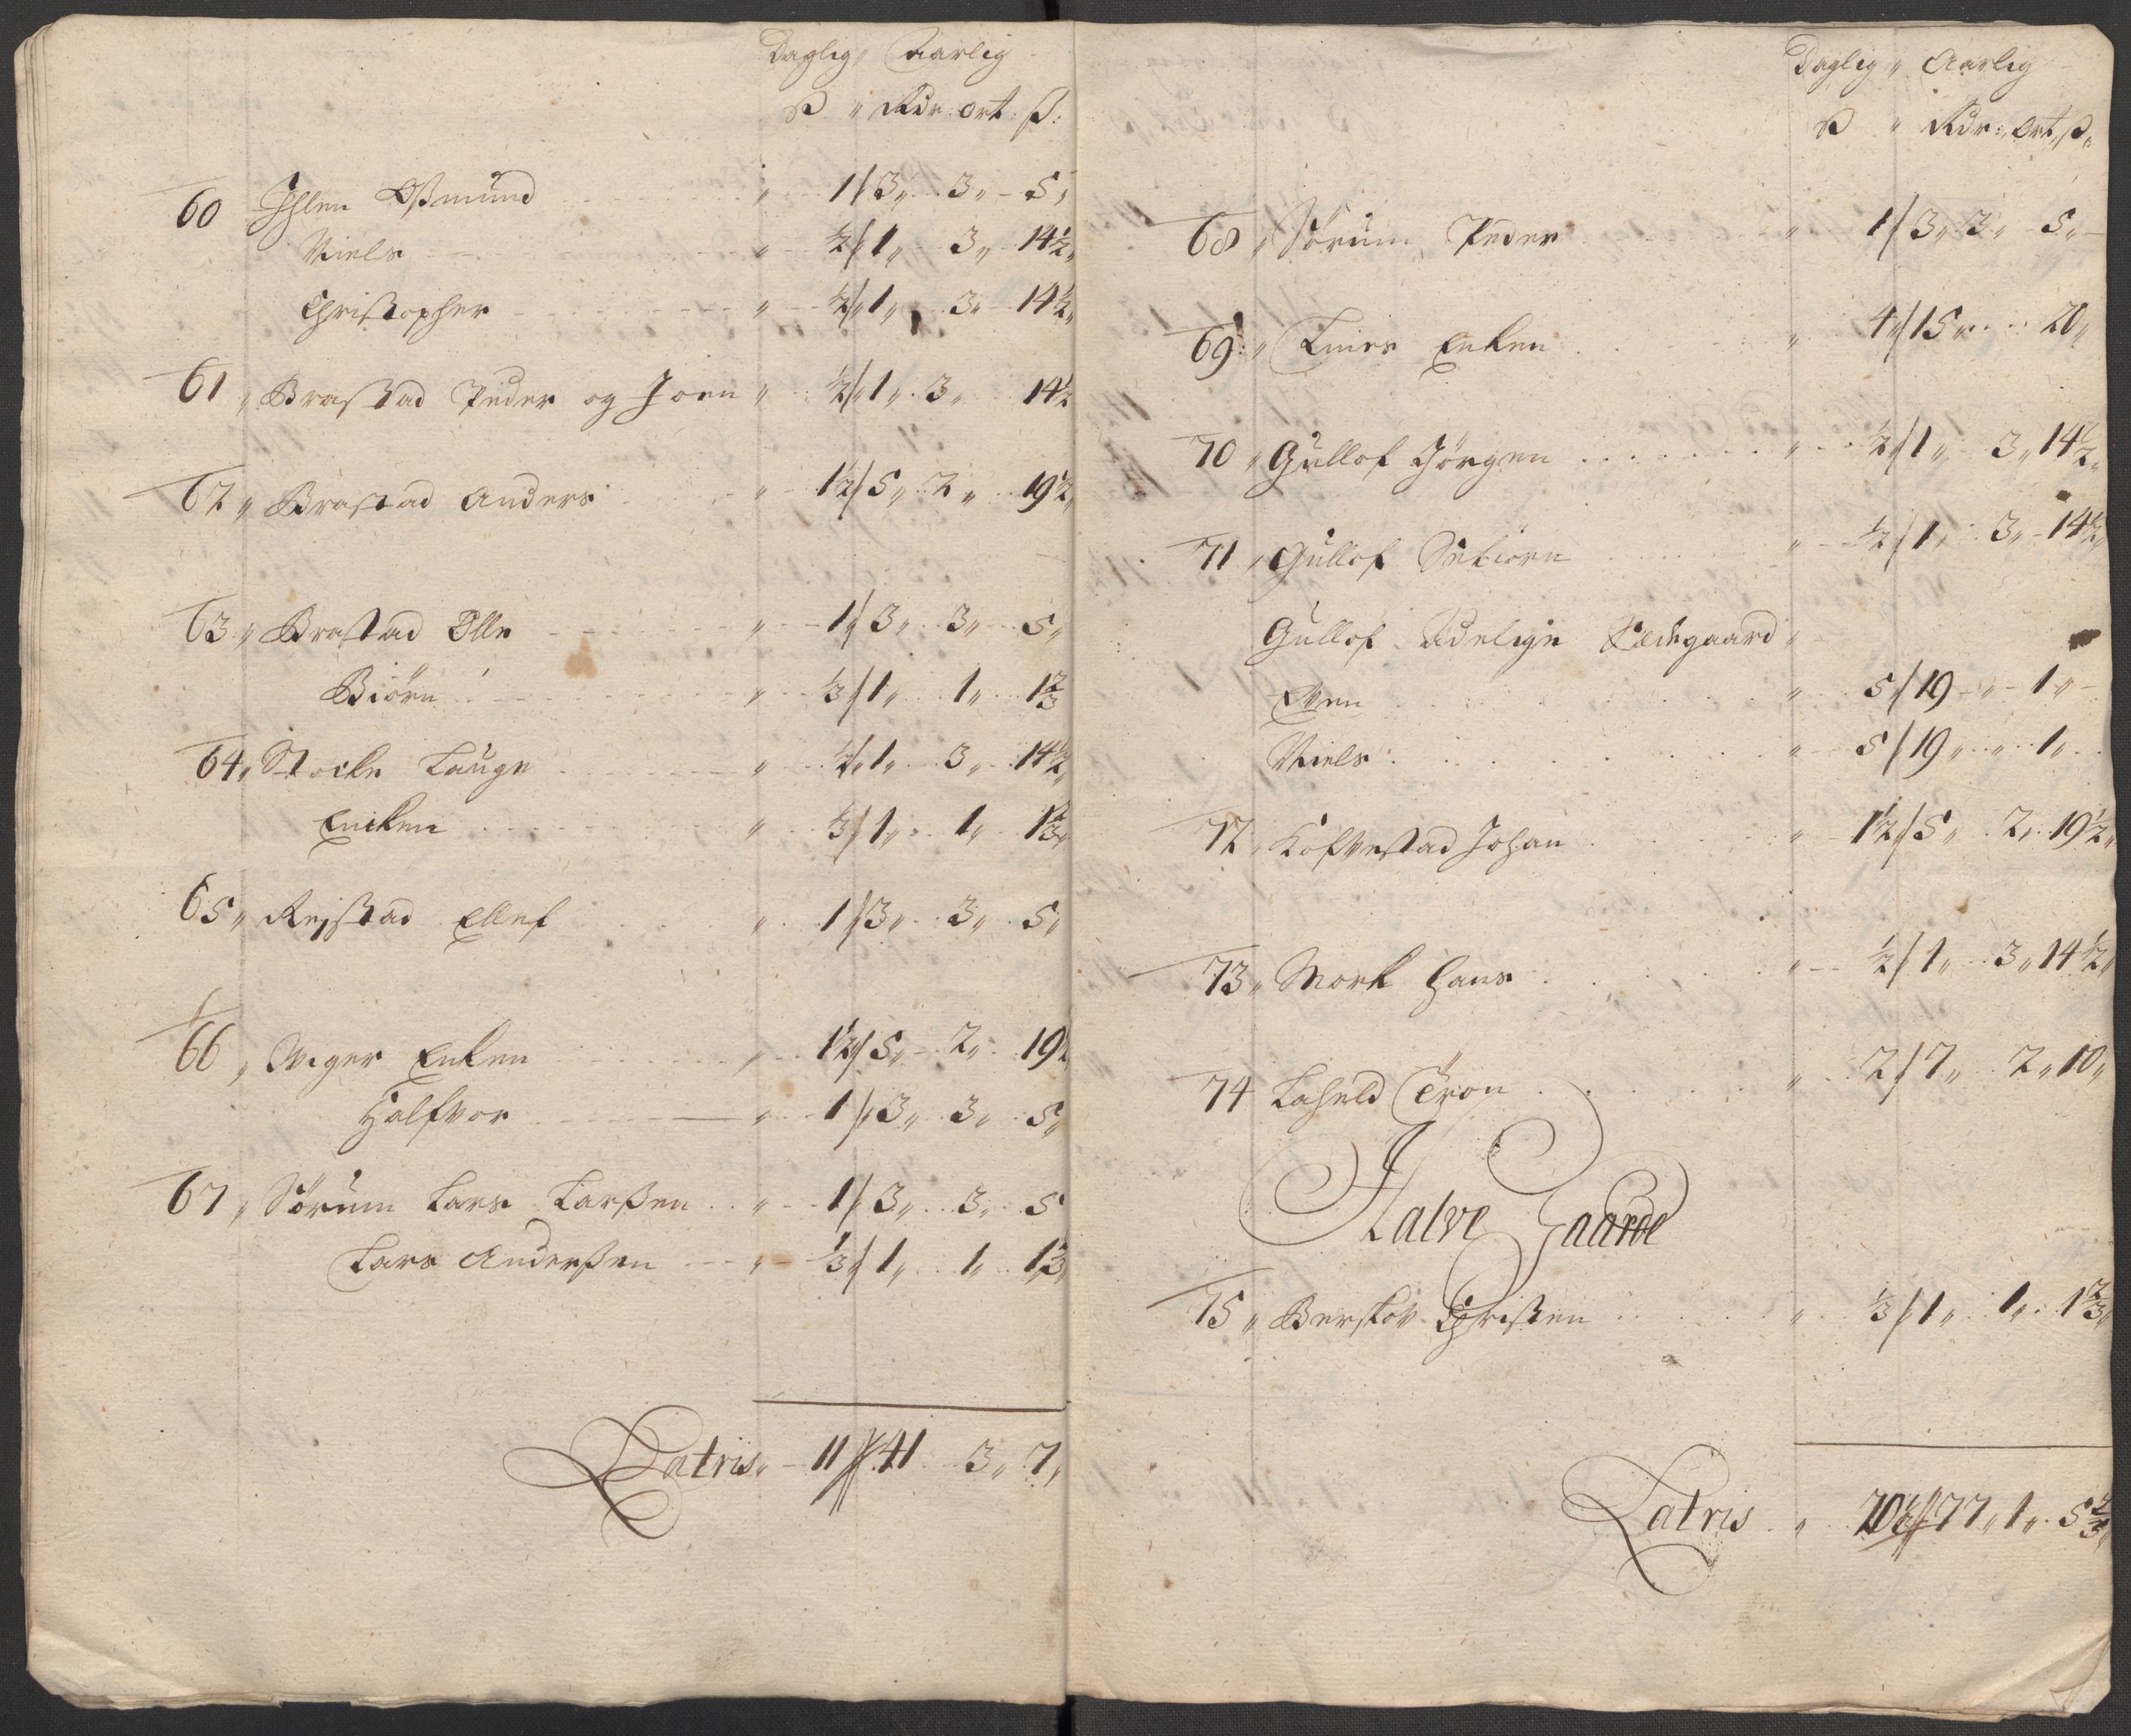 Daglig „ Aarlig
ß „ Rdr: ort: ß:
60 Ihlen Oßmund „ 1/3„ 3„ 5„
Niels „ ½/1„ 3„ 14½„
Christopher „ ½/1„ 3„ 14½„
61 „ Braßtad Peder og Joen „ ½/1„ 3„ 14½
62 „ Brastad Anders „ 1½/5„ 2„ 19½
63 „ Brastad Olle „ 1/3„ 3„ 5„
Biörn „ ⅓/1„ 1„ 1⅔
64 „ Stocke Lauge „ ½/1„ 3„ 14½„
Encken „ ⅓/1„ 1„ 1⅔„
65 „ Rejstad Ellef „ 1/3„ 3„ 5„
66 „ Wiger Enken „ 1½/5„ 2„ 19½
Halfvor „ 1/3„ 3„ 5„
67 „ Sörum Lars Larßen „ 1/3„ 3„ 5
Lars Anderßen „ ⅓/1„ 1„ 1⅔„
Latris „ 11//41 3„ 7„
Daglig „ Aarlig
ß „ Rdr: Ort, ß„
68 „ Sörum Peder „ 1/3„ 3„ 5„
69 „ Linies Enken „ 4/15„ 20„
70 „ Gullof Jörgen „ ½/1„ 3„ 14½„
71 „ Gullof Setiorn „ ½/1„ 3„ 14½„
Gullof Adelige Sædegaard „
Even „ 5/19 „ 1„
Niels „ 5/19„ „ 1„
72 „ Kofvestad Johan „ 1½/5„ 2„ 19½„
73 „ Mork Hans „ ½/1„ 3„ 14½„
74 Laheld Tron „ 2/7„ 2„ 10„
Halve Gaarde
75 „ Berskov Christen „ ⅓/1„ 1„ 1⅔„
Latris „ 77„ 1„ 5⅔„